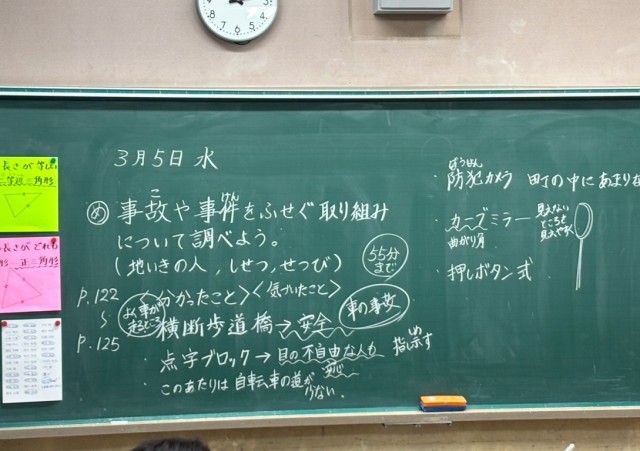 3月5日 水
め 事故や事件をふせぐ取り組み
について調べよう。
(地いきの人, しせつ, せつび)
55分
まで
P.122
〜
P.125
<分かったこと> <気づいたこと>
よく事が
起こるところ
車の事故
横断歩道橋→安全
・点字ブロック→目の不自由な人が 指示す
・このあたりは自転車の道が
少ない。
ぼうはん
・防犯カメラ 町の中にあまりな
・カーブミラー
曲がり角
見えない
ところを
見えやすく
・押しボタン式
長さが等しい
二等辺三角形
長さがどれも
形 正三角形